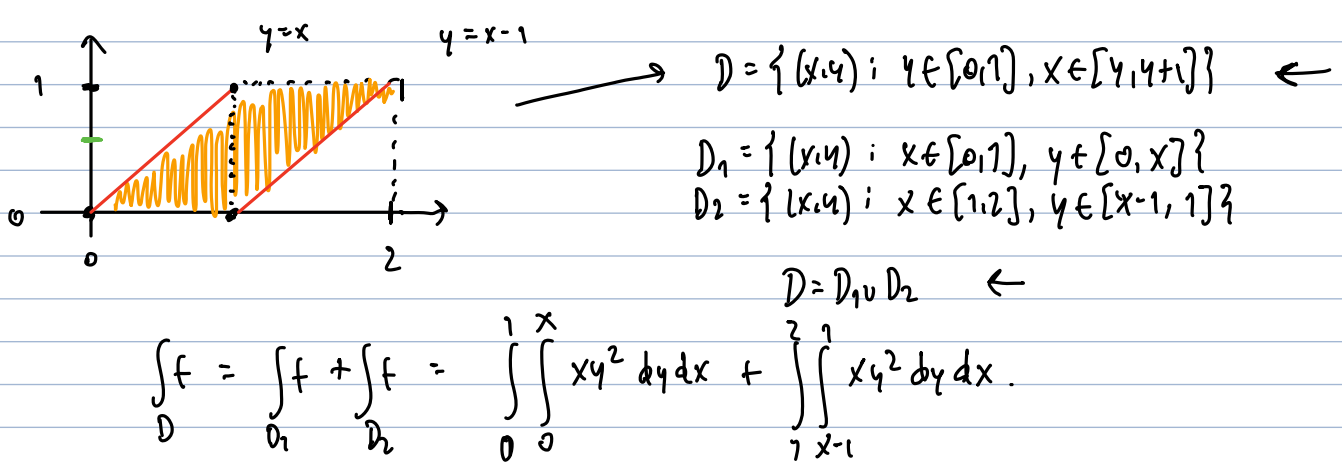 y=x y=x-1
1 D={(x,y) ; y∈[0,1], x∈[y,y+1]} ←
D₁={(x,y) ; x∈[0,1], y∈[0,x]}
0 D₂={(x,y) ; x∈[1,2], y∈[x-1,1]}
0 2
D=D₁∪D₂ ←
∫_D f = ∫_{D₁} f + ∫_{D₂} f = ∫_0^1 ∫_0^x xy² dy dx + ∫_1^2 ∫_{x-1}^1 xy² dy dx.